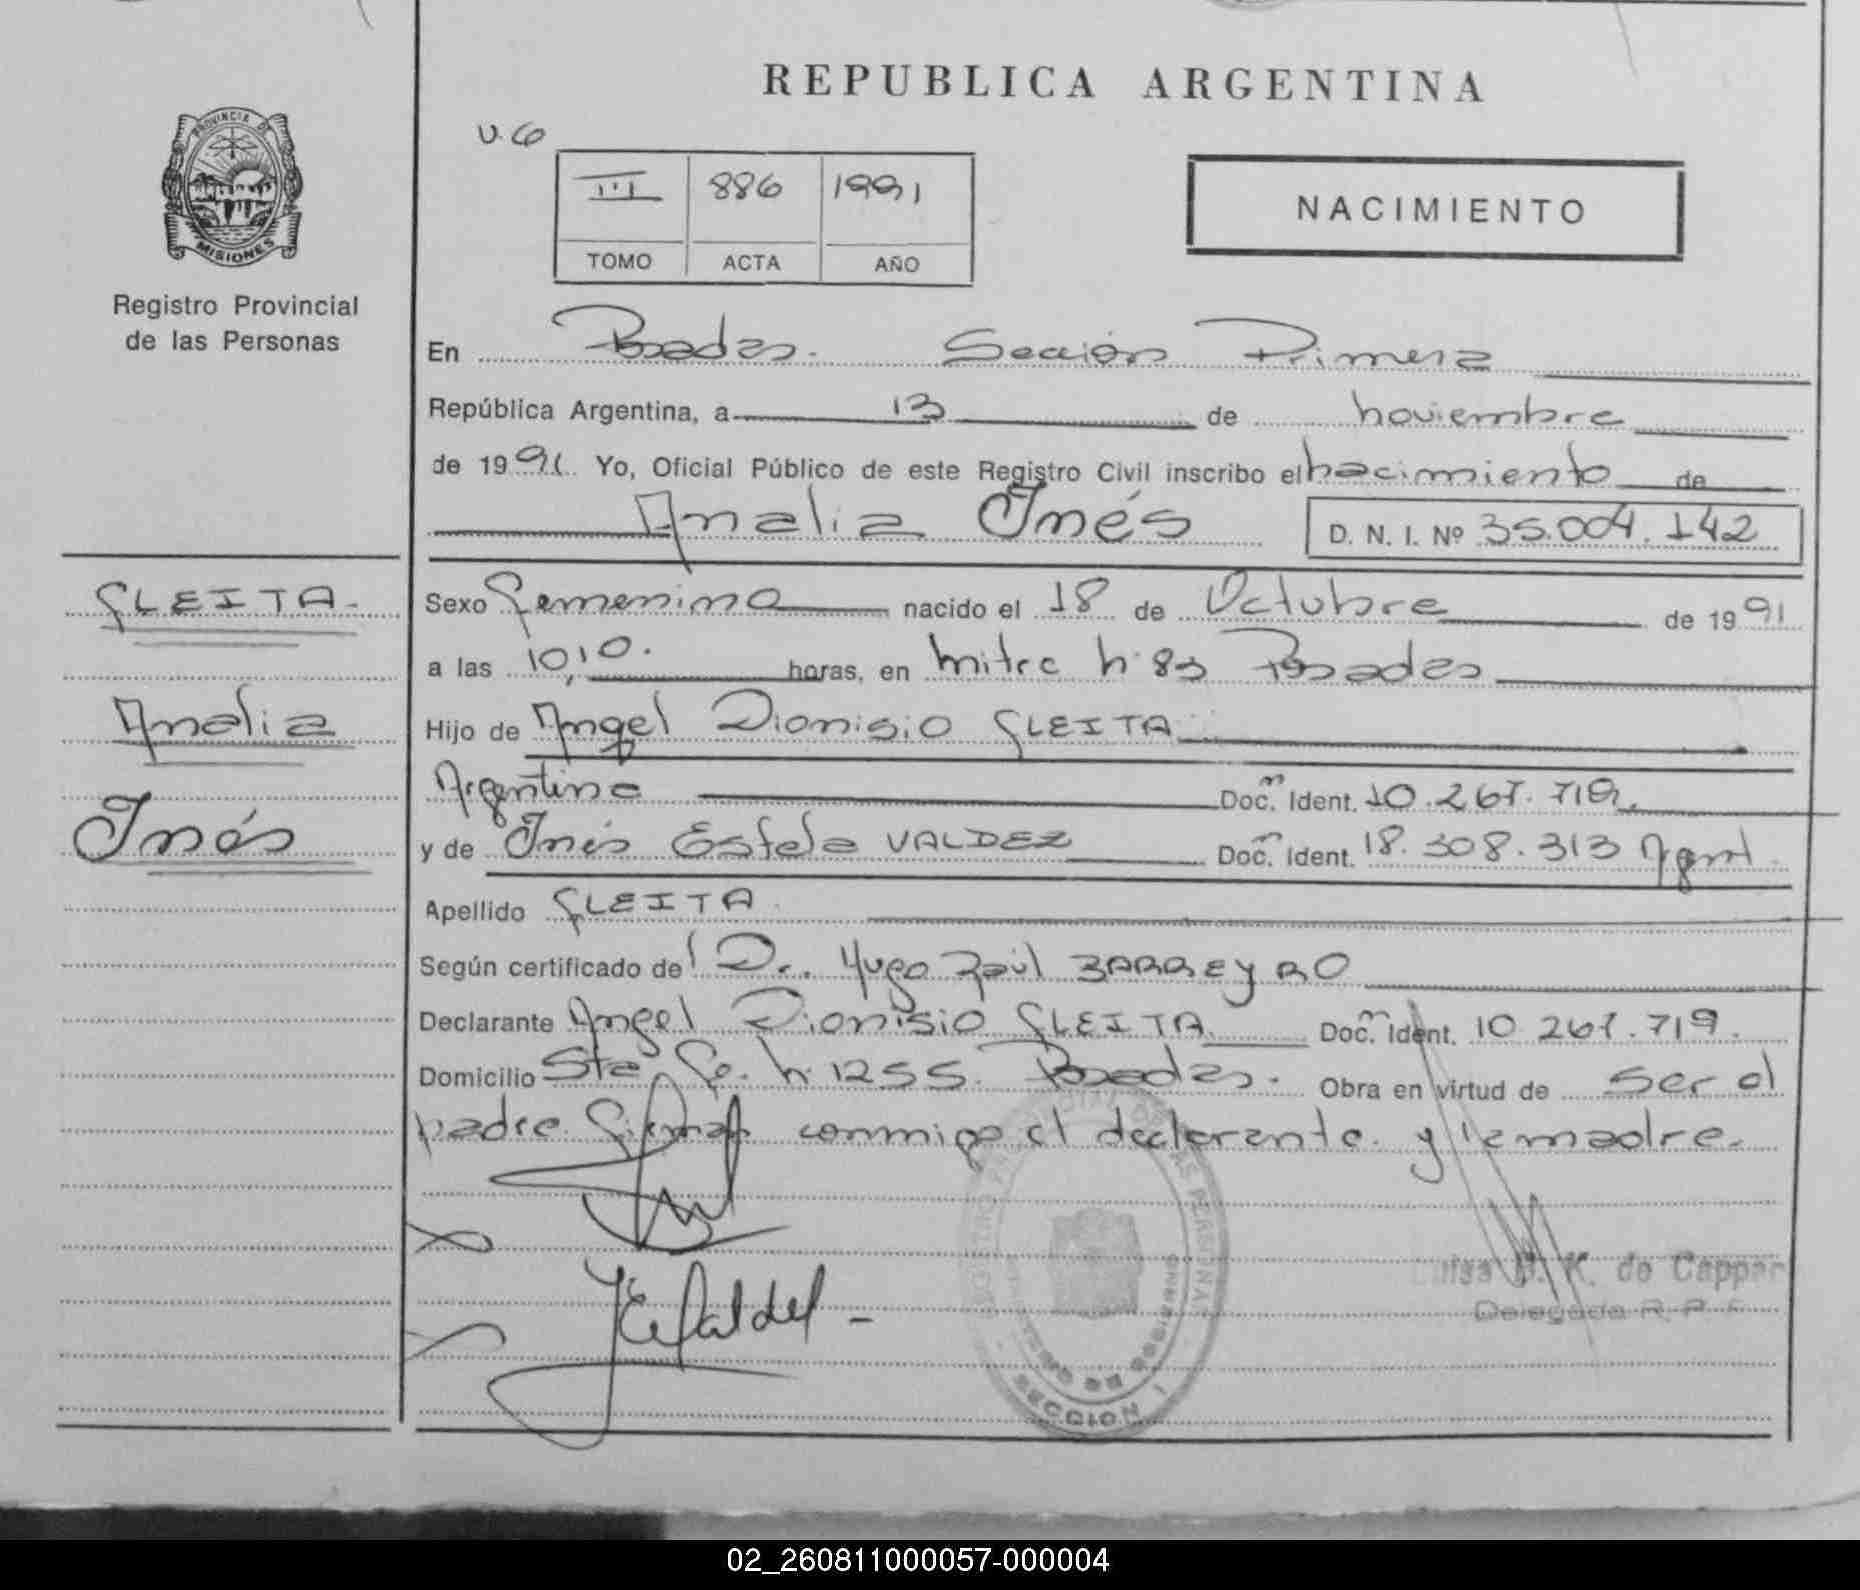 REPUBLICA ARGENTINA
PROVINCIA DE
MISIONES
Registro Provincial
de las Personas
III 886 1991
TOMO ACTA AÑO
NACIMIENTO
En Posadas. Sección Primera
República Argentina, a 13 de noviembre
de 1991. Yo, Oficial Público de este Registro Civil inscribo el nacimiento de
Analia Inés D. N. I. Nº 35.004.142
GLEITA
Analia
Inés
Sexo femenino nacido el 18 de Octubre de 1991
a las 10,10. horas, en mitre n: 83 Posadas
Hijo de Angel Dionisio GLEITA
Argentino Doc. Ident. 10.267.719.
y de Inés Estela VALDEZ Doc. Ident. 18.308.313 Argent.
Apellido GLEITA
Según certificado del Dr. Hugo Raúl BARREYRO
Declarante Angel Dionisio GLEITA Doc. Ident. 10.267.719.
Domicilio Sta Fe. n: 1255. Posadas. Obra en virtud de ser el
padre. Firman conmigo el declarante. y la madre.
REGISTRO PROVINCIAL DE LAS PERSONAS
SECCION I
K. de Cappar
Delegada R. P. P.
02_260811000057-000004